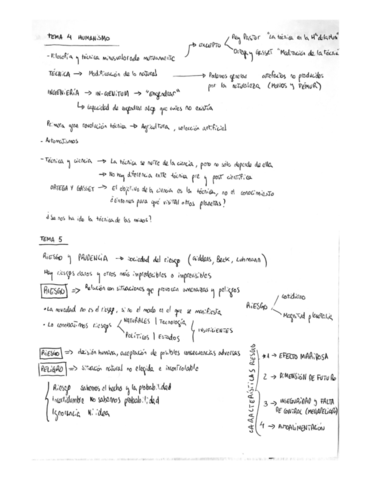 TEMA 4 HUMANISMO
- Filosofía y técnica minusvalorada mutuamente → EXCEPTO
Rey Pastor "La técnica en la Hª de la Hum
Ortega y Gasset "Meditación de la técnica
TÉCNICA → Modificación de la natural → Podemos generar artefactos no producidos
por la naturaleza (Motos y Pentium)
INGENIERÍA → IN-GENITURA → "engendrar"
↳ capacidad de engendrar algo que antes no existía
Primera gran revolución técnica → Agricultura, selección artificial
- Automatismos
- Técnica y ciencia → La técnica se nutre de la ciencia, pero no solo depende de ella
→ No hay diferencia entre técnica pre y post científica
ORTEGA Y GASSET → El objetivo de la ciencia es la técnica, no el conocimiento
para qué visitar otros planetas?
¿Se nos ha ido la técnica de las manos?
TEMA 5
RIESGO Y PRUDENCIA → sociedad del riesgo (Giddens, Beck, Luhmann)
Hay riesgos claros y otros más improbables o imprevisibles
RIESGO → Relación en situaciones que provocan amenazas y peligros
- La novedad no es el riesgo, si no el modo en el que se manifiesta
- Lo construimos riesgos
NATURALES | TECNOLOGÍA
POLÍTICOS | ESTADOS
INSUFICIENTES
RIESGO
cotidiano
Magnitud planetaria
RIESGO → decisión humana, aceptación de posibles consecuencias adversas
PELIGRO → situación natural no elegida e incontrolable
Riesgo sabemos el hecho y la probabilidad
Incertidumbre No sabemos probabilidad
Ignorancia Ni idea
CARACTERÍSTICAS RIESGO
1 → EFECTO MARIPOSA
2 → DIMENSIÓN DE FUTURO
3 → INSEGURIDAD Y FALTA
DE CONTROL
4 → AUTOALIMENTACIÓN